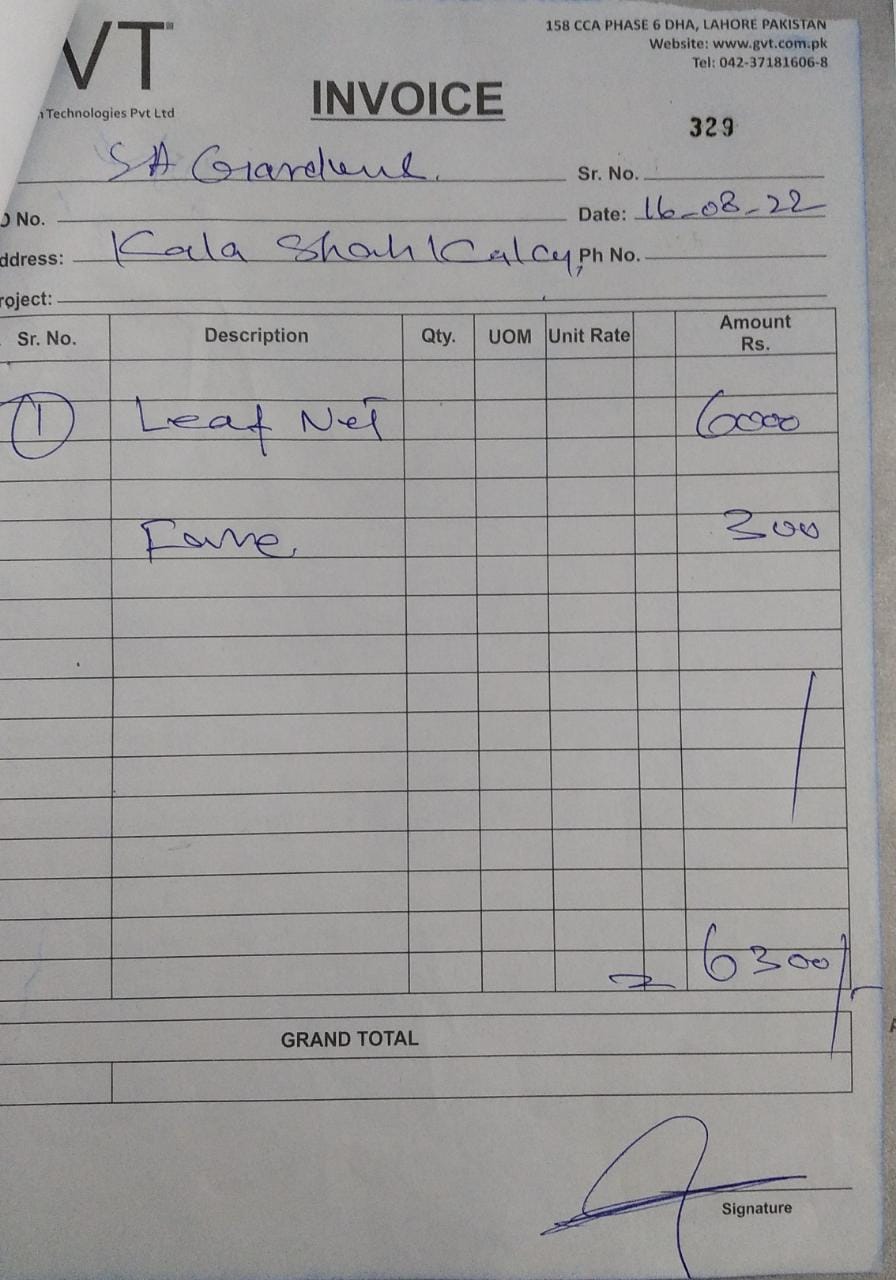 VT
Technologies Pvt Ltd
158 CCA PHASE 6 DHA, LAHORE PAKISTAN
Website: www.gvt.com.pk
Tel: 042-37181606-8
INVOICE
329
SA Gardens. Sr. No.
No. Date: 16-08-22
ddress: Kala Shah Kaku, Ph No.
roject:
Sr. No. Description Qty. UOM Unit Rate Amount Rs.
1 Leaf Net 6000
Fare, 300
6300/-
GRAND TOTAL
Signature